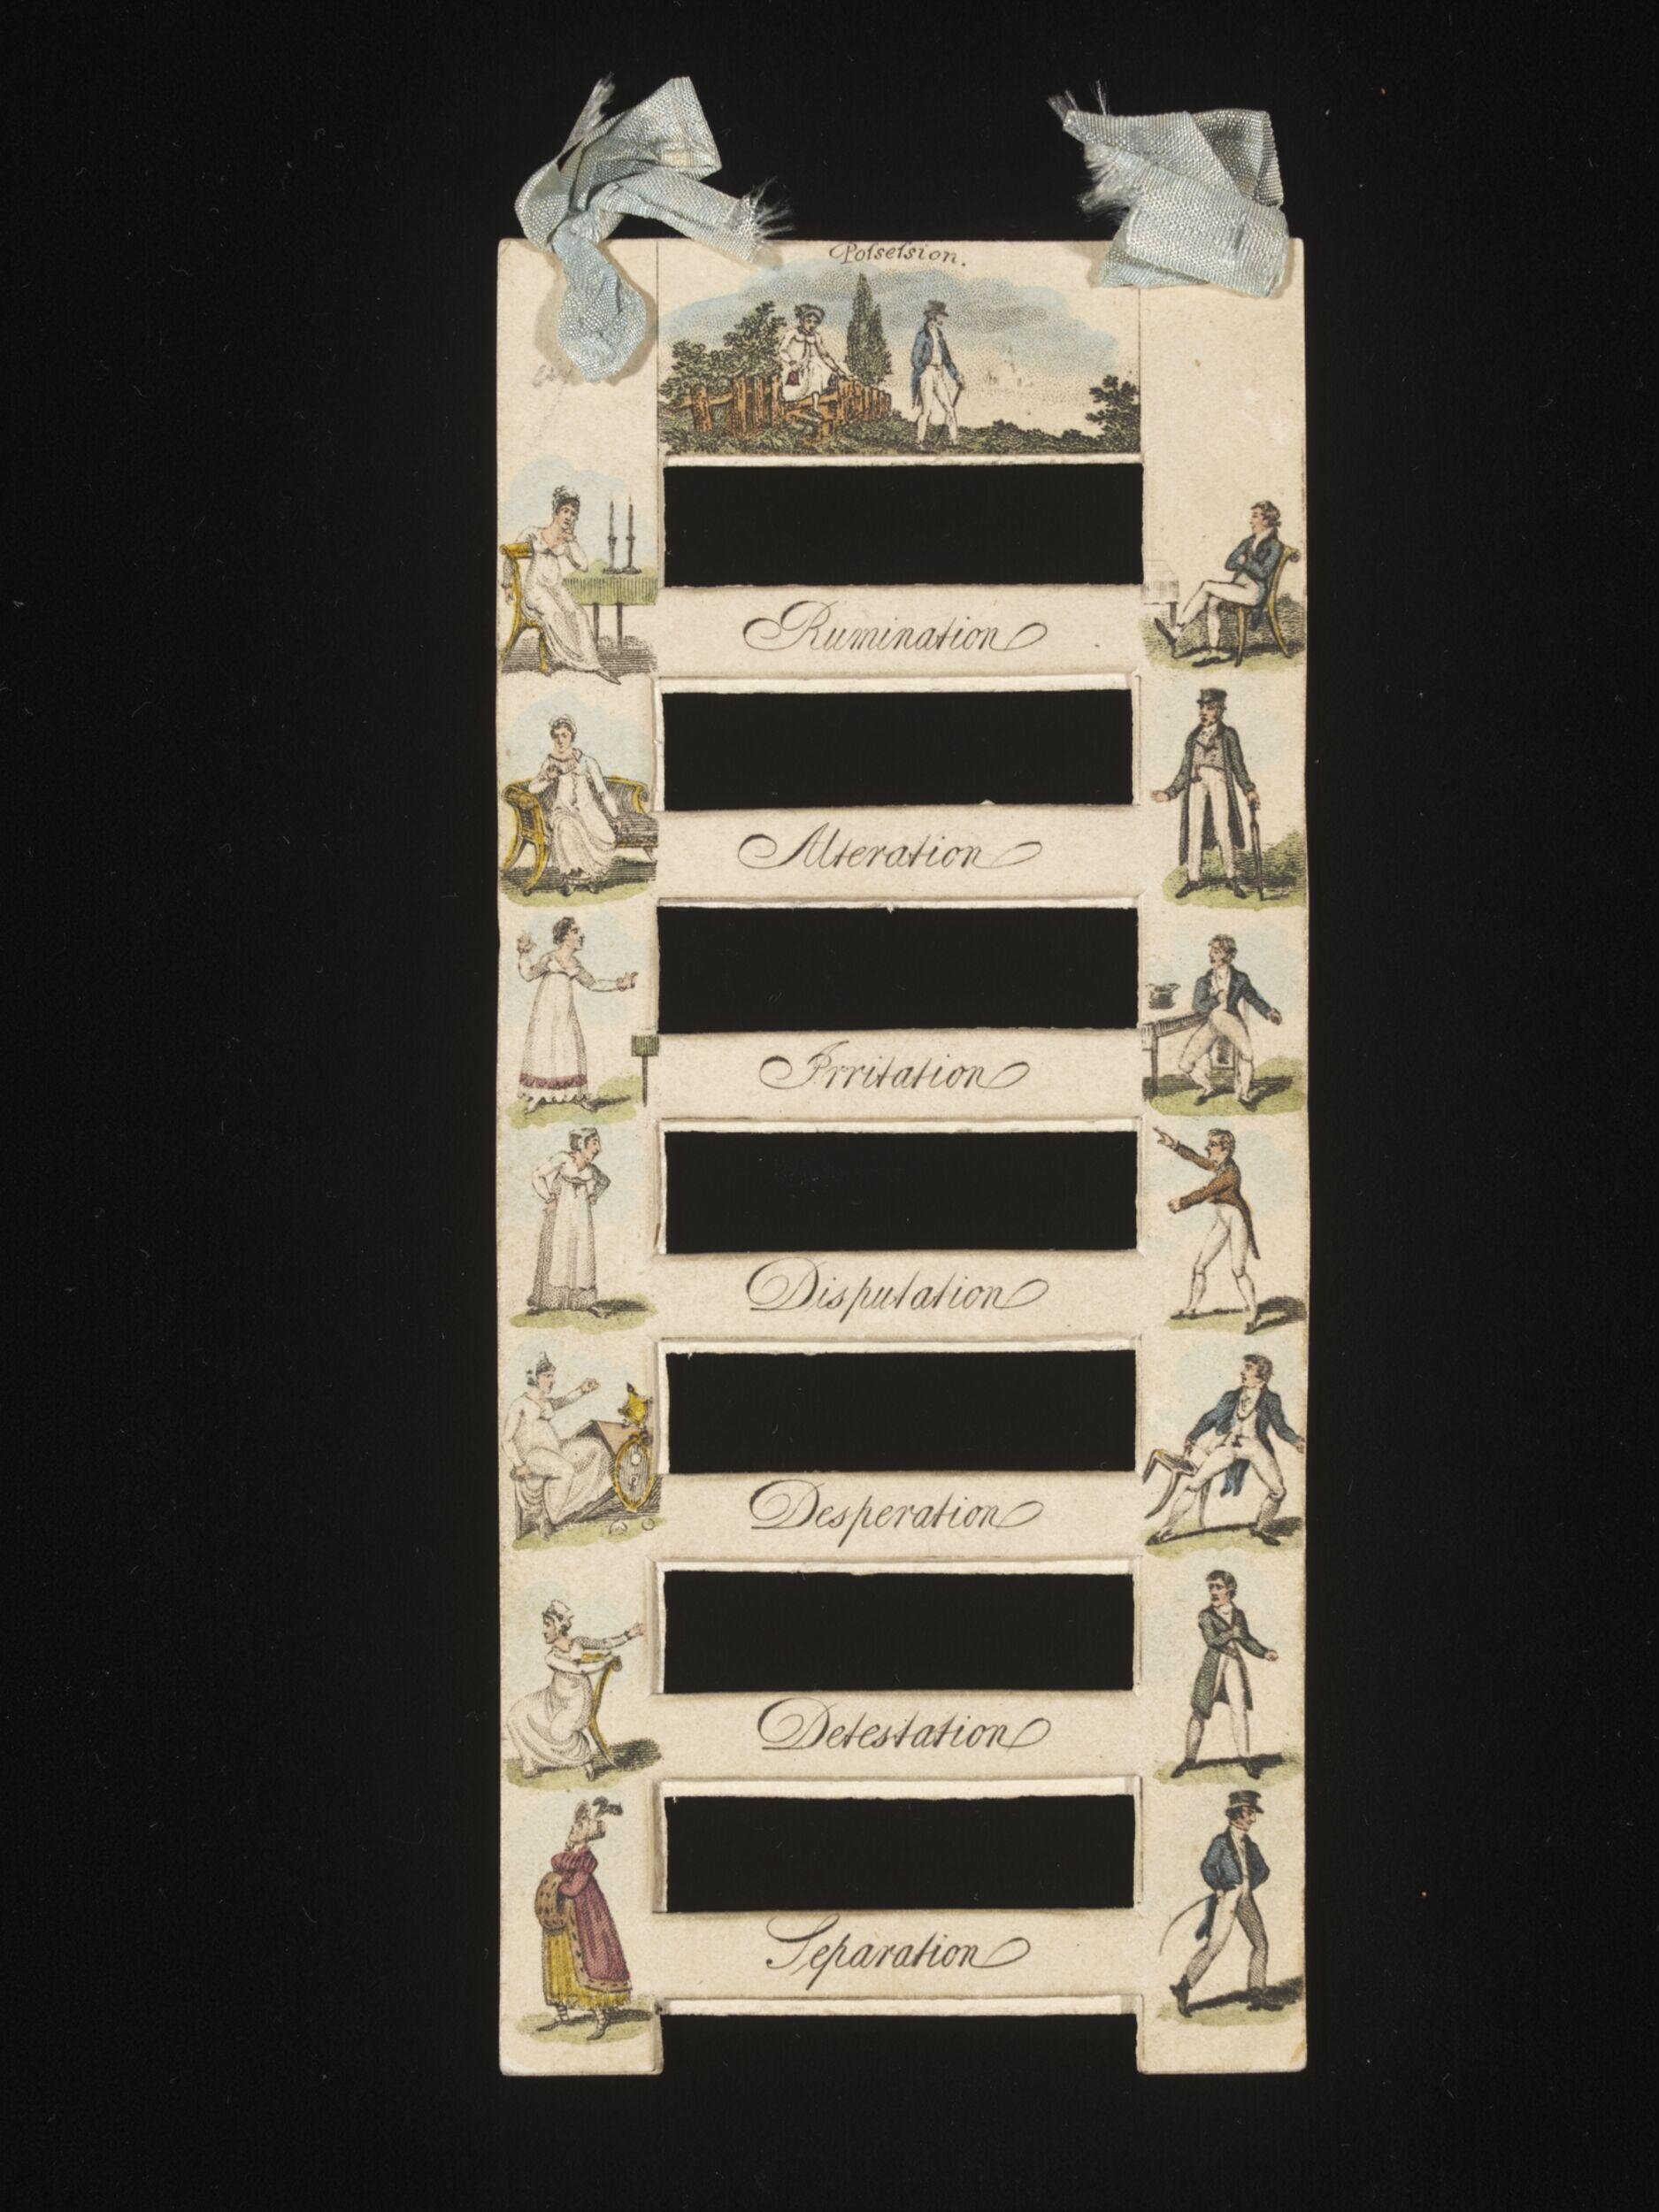 Poſseſsion.
Rumination
Alteration
Irritation
Disputation
Desperation
Detestation
Separation